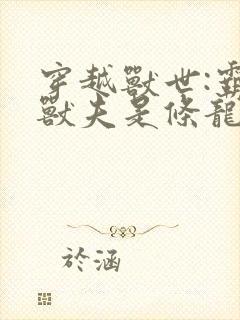 穿越獸世:霸
獸夫是條龍
於涵